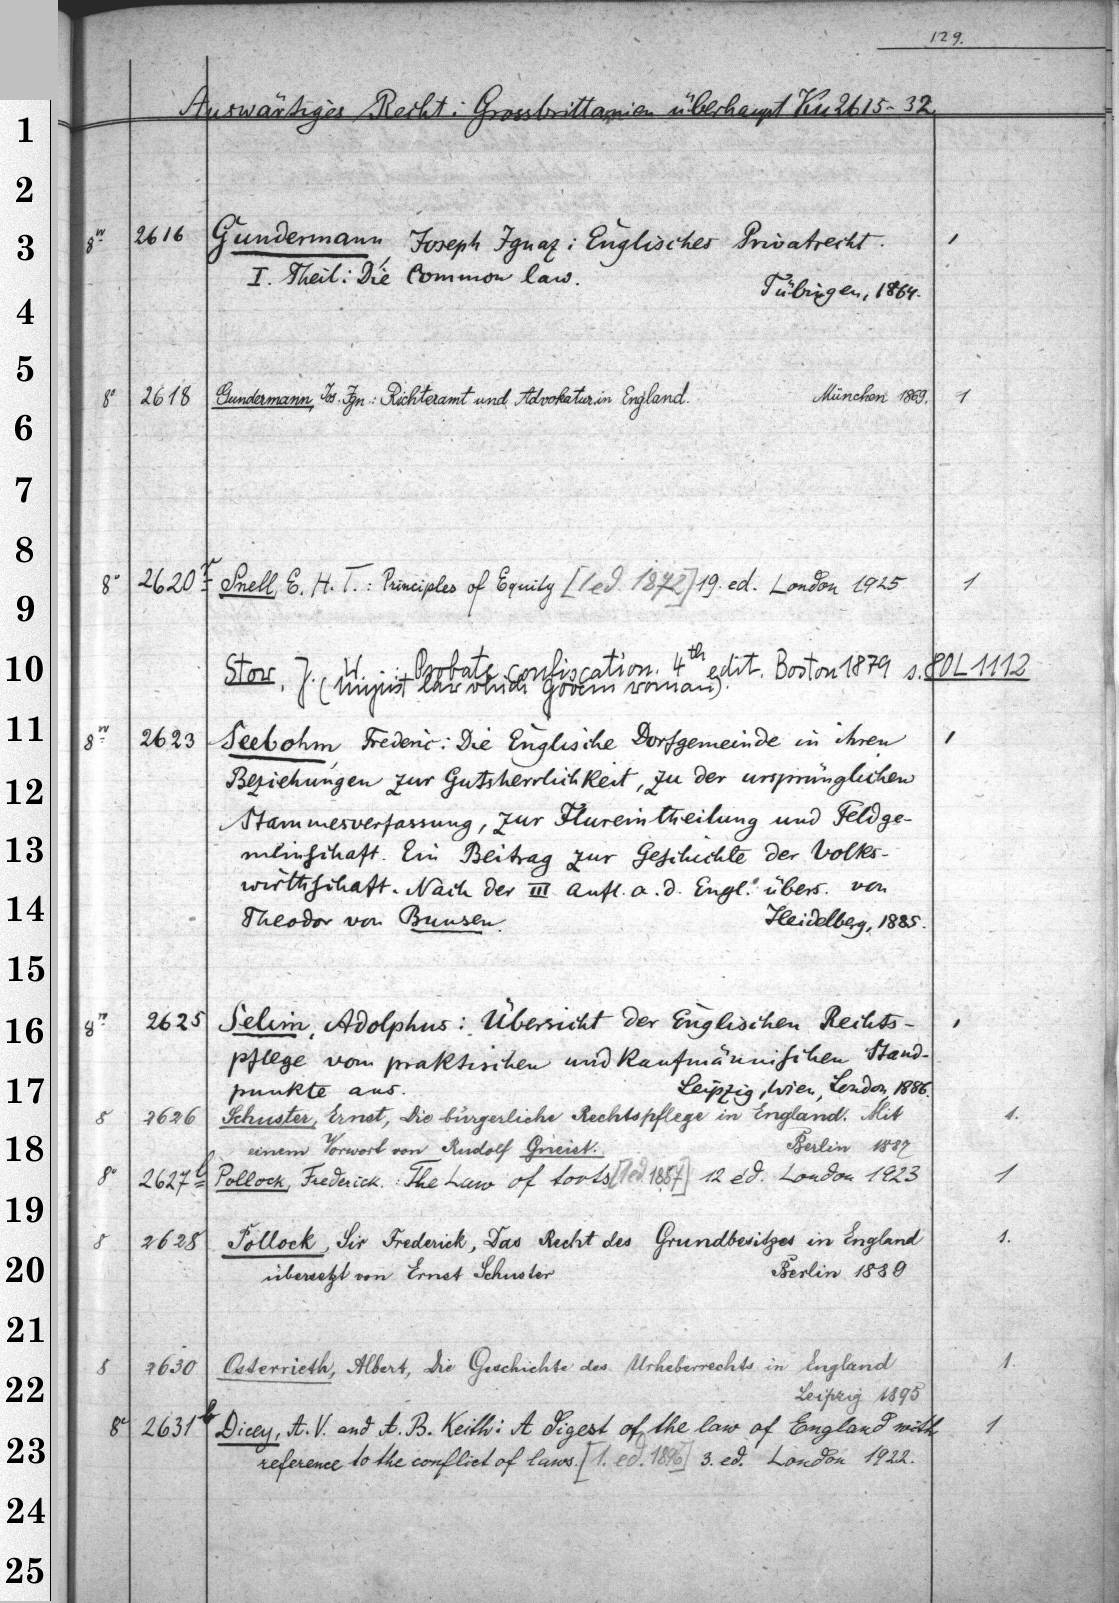 129.
Auswärtiges Recht: Grossbrittannien überhaupt Ku 2615-32.
8° 2616 Gundermann, Joseph Ignaz: Englisches Privatrecht. 1
I. Theil: Die Common law.
Tübingen, 1864.
8° 2618 Gundermann, Jos. Ign.: Richteramt und Advokatur in England. München 1869. 1
8° 2620 Snell, E. H. T.: Principles of Equity [1 ed. 1872] 19. ed. London 1925 1
Stow, J. W.: Probate confiscation. 4th edit. Boston 1879 s. 80L1112
(Unjust law which govern woman).
8° 2623 Seebohm, Frederic: Die Englische Dorfgemeinde in ihren 1
Beziehungen zur Gutsherrlichkeit, zu der ursprünglichen
Stammesverfassung, zur Flureintheilung und Feldge-
meinschaft. Ein Beitrag zur Geschichte der Volks-
wirthschaft. Nach der III Aufl. a. d. Engl. übers. von
Theodor von Bunsen. Heidelberg, 1885.
8° 2625 Selim, Adolphus: Übersicht der Englischen Rechts- 1
pflege vom praktischen und kaufmännischen Stand-
punkte aus. Leipzig, Wien, London, 1886.
8 2626 Schuster, Ernst, Die bürgerliche Rechtspflege in England. Mit 1.
einem Vorwort von Rudolf Gneist. Berlin 1887
8° 2627 Pollock, Frederick: The Law of torts [1 ed. 1887] 12 ed. London 1923 1
8 2628 Pollock, Sir Frederick, Das Recht des Grundbesitzes in England 1.
übersetzt von Ernst Schuster Berlin 1889
8 2630 Osterrieth, Albert, Die Geschichte des Urheberrechts in England 1.
Leipzig 1895
8° 2631 b Dicey, A. V. and A. B. Keith: A Digest of the law of England with 1
reference to the conflict of laws. [1. ed. 1896] 3. ed. London 1922.
1
2
3
4
5
6
7
8
9
10
11
12
13
14
15
16
17
18
19
20
21
22
23
24
25